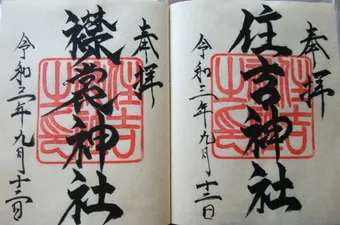 奉拝
住吉神社
令和三年九月十二日
奉拝
襟裳神社
令和三年九月十二日
住吉
住吉